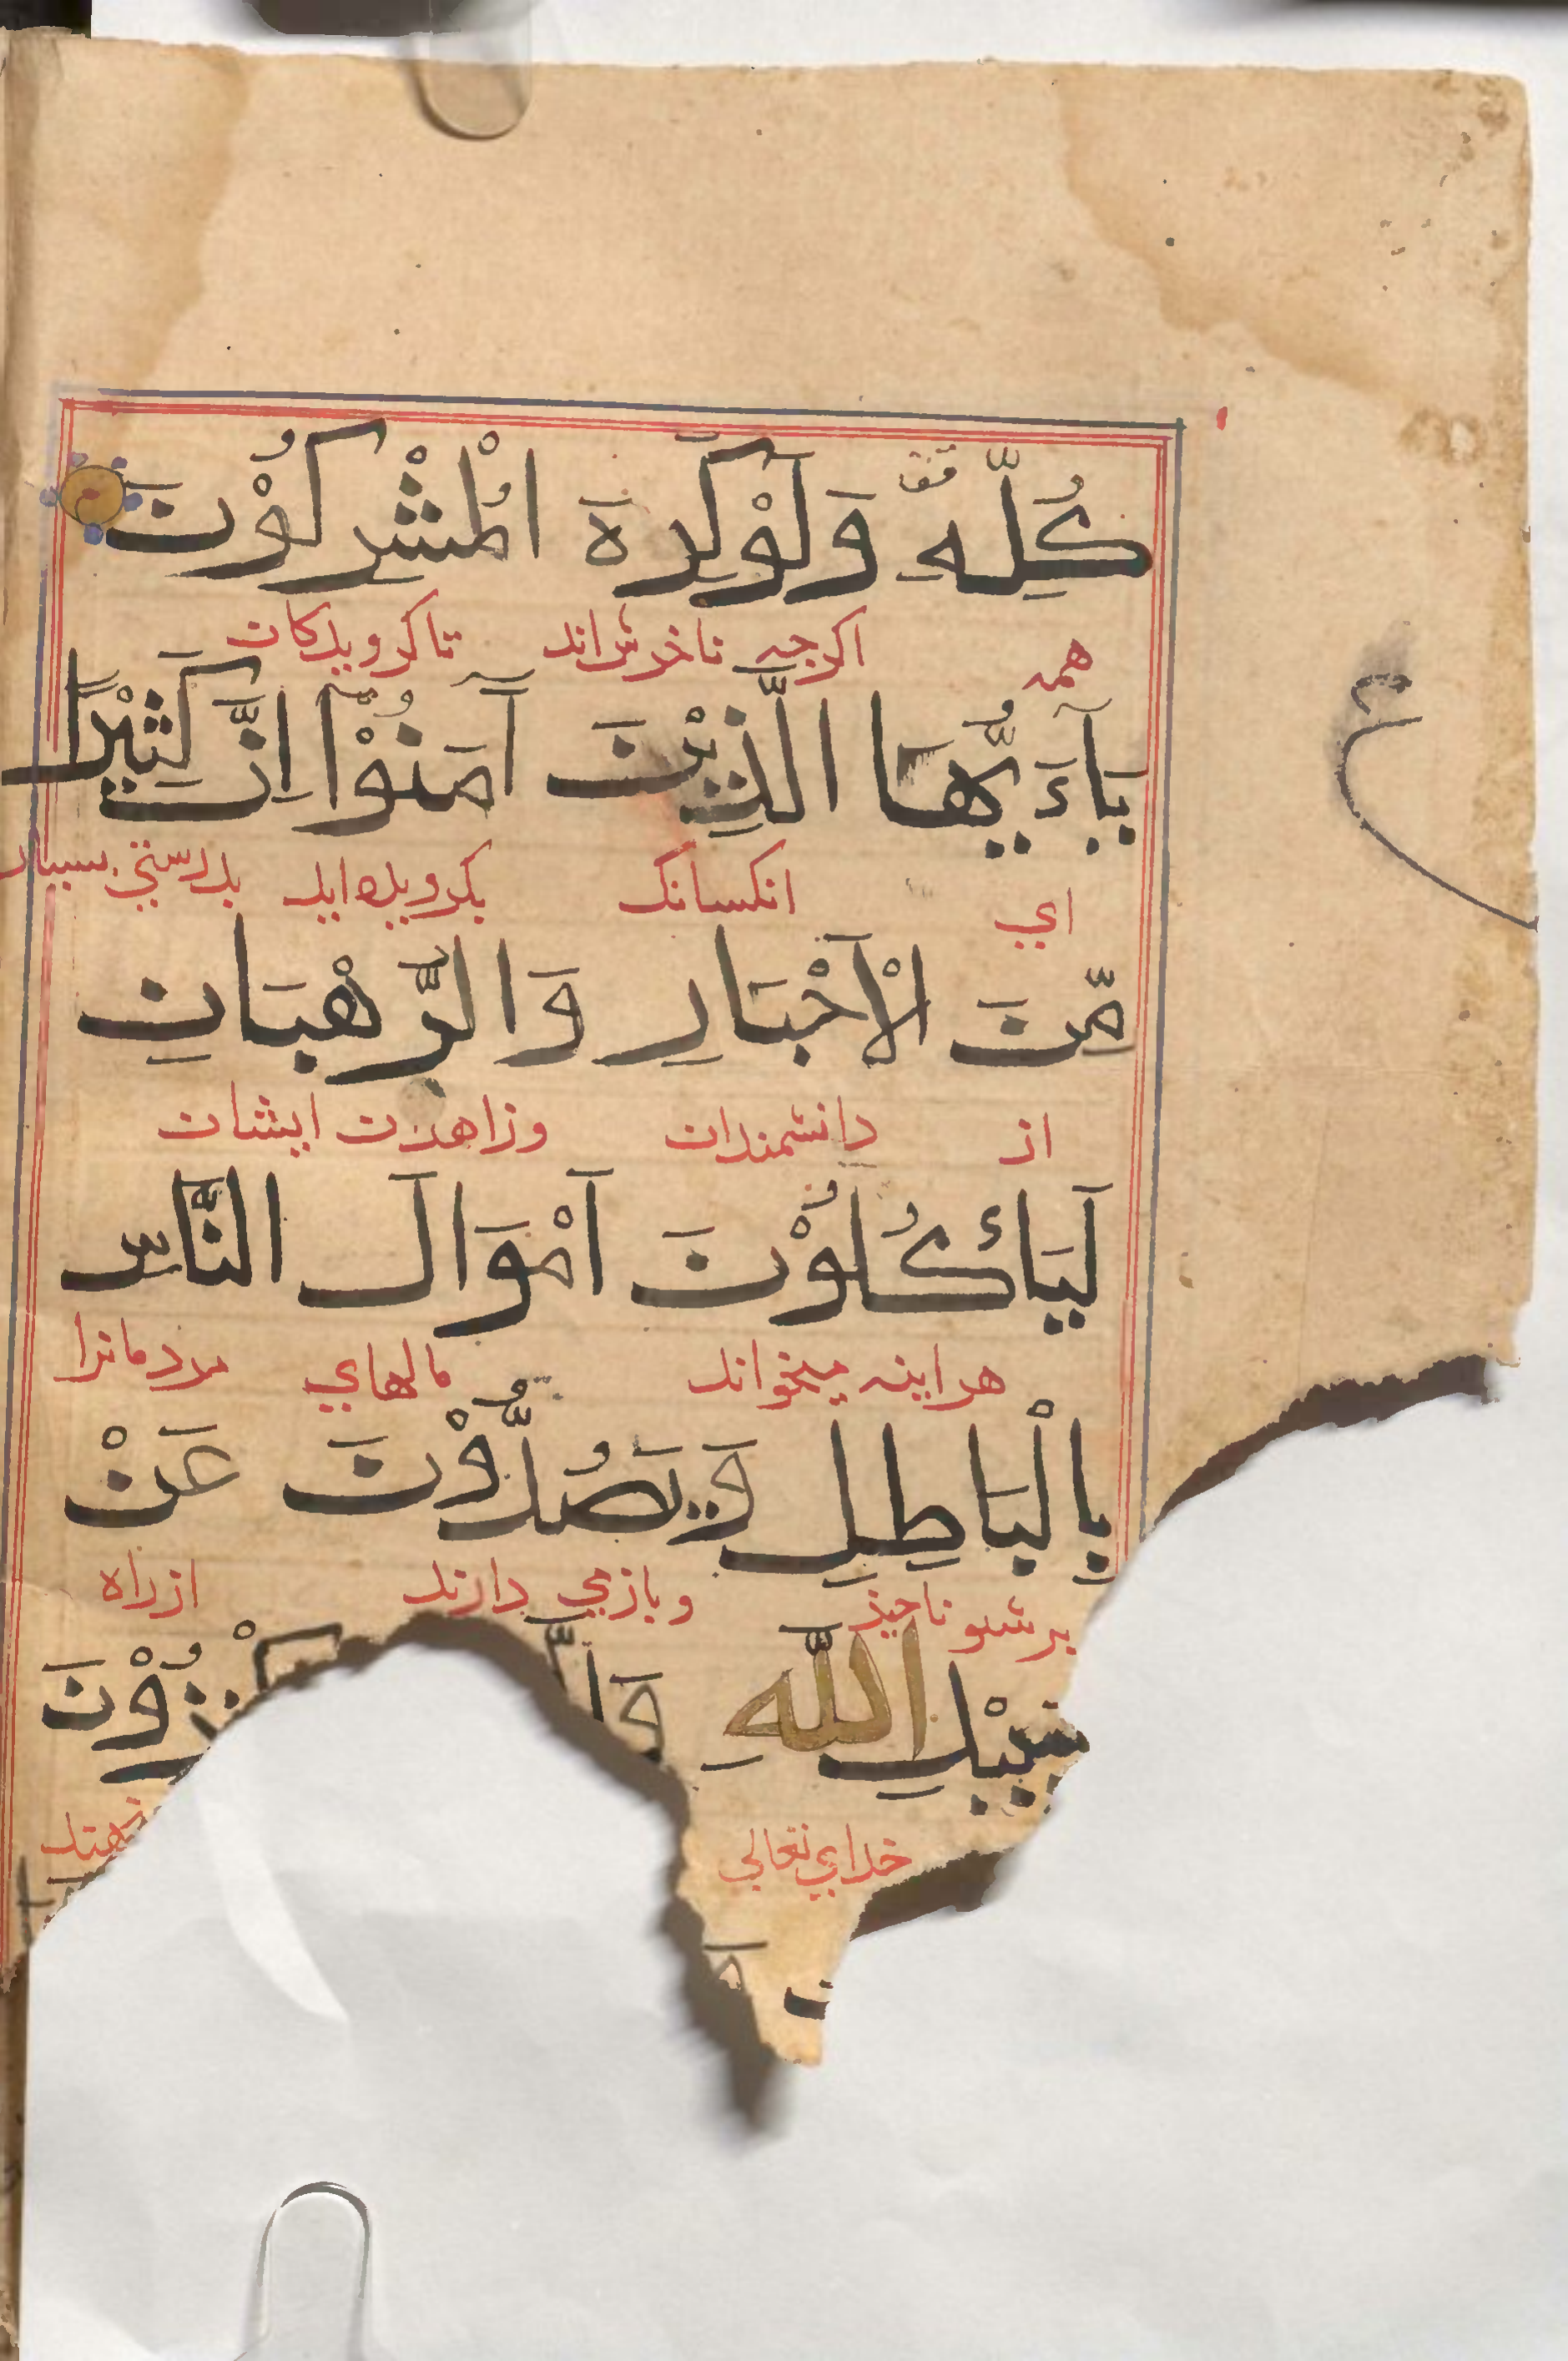 كُلِّهِ وَلَوْكَرِهَ الْمُشْرِكُوْنَ
همه اكرچه ناخوش اند ناكرويدكان
يَاءَيُّهَا الَّذِيْنَ آمَنُوْا اِنَّ كَثِيْرًا
اي انكسانك بكرويده ايد بدرستي بسيار
مِّنَ الْاَحْبَارِ وَالرُّهْبَانِ
از دانشمندان وزاهدن ايشان
لَيَأْكُلُوْنَ اَمْوَالَ النَّاسِ
هراينه ميخواند مالهاي مردمانرا
بِالْبَاطِلِ وَيَصُدُّوْنَ عَنْ
ناچيز وبازمي دارند ازراه
سَبِيْلِ اللّٰهِ وَا زُوْنَ
خداي تعالي